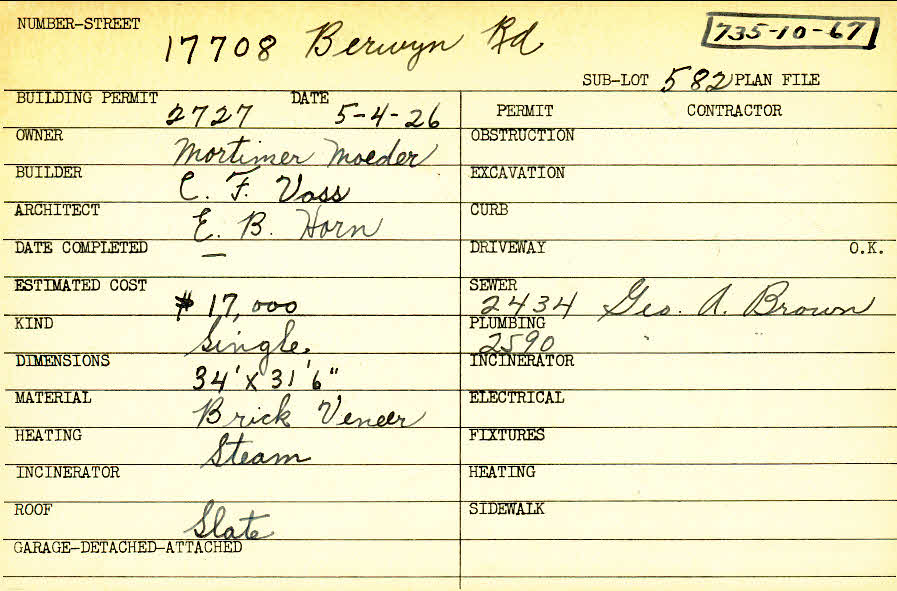 NUMBER-STREET 17708 Berwyn Rd 735-10-67
SUB-LOT 582 PLAN FILE
BUILDING PERMIT 2727 DATE 5-4-26
OWNER Mortimer Moeder
BUILDER C. F. Voss
ARCHITECT E. B. Horn
DATE COMPLETED —
ESTIMATED COST $17,000
KIND Single.
DIMENSIONS 34' x 31'6"
MATERIAL Brick Veneer
HEATING Steam
INCINERATOR
ROOF Slate
GARAGE-DETACHED-ATTACHED
PERMIT CONTRACTOR
OBSTRUCTION
EXCAVATION
CURB
DRIVEWAY O.K.
SEWER 2434 Geo. A. Brown
PLUMBING 2590 "
INCINERATOR
ELECTRICAL
FIXTURES
HEATING
SIDEWALK